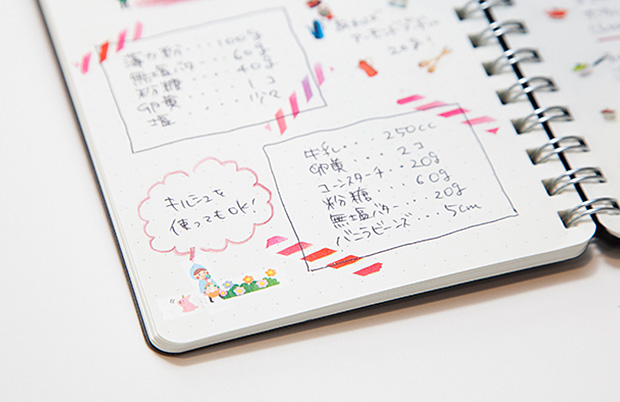 薄力粉...100g
無塩バター...60g
粉糖....40g
卵黄.....1コ
塩......少々
20g!
牛乳...250cc
卵黄....2コ
コーンスターチ..20g
粉糖....60g
無塩バター...20g
バニラビーンズ...5cm
キルシュを
使ってもOK!